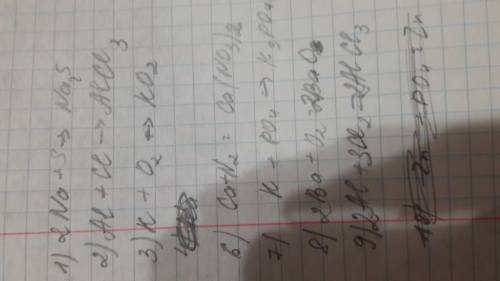 1) 2Na + S → Na2S
2) Al + Cl → AlCl3
3) K + O2 → KO2
6) Ca+1/2 = Ca(NO3)2
7) K + PO4 → K3PO4
8) 2Ba + O2 = 2BaO
9) 2Al + 3Cl2 = 2AlCl3
10) Zn + PO4 = Zn